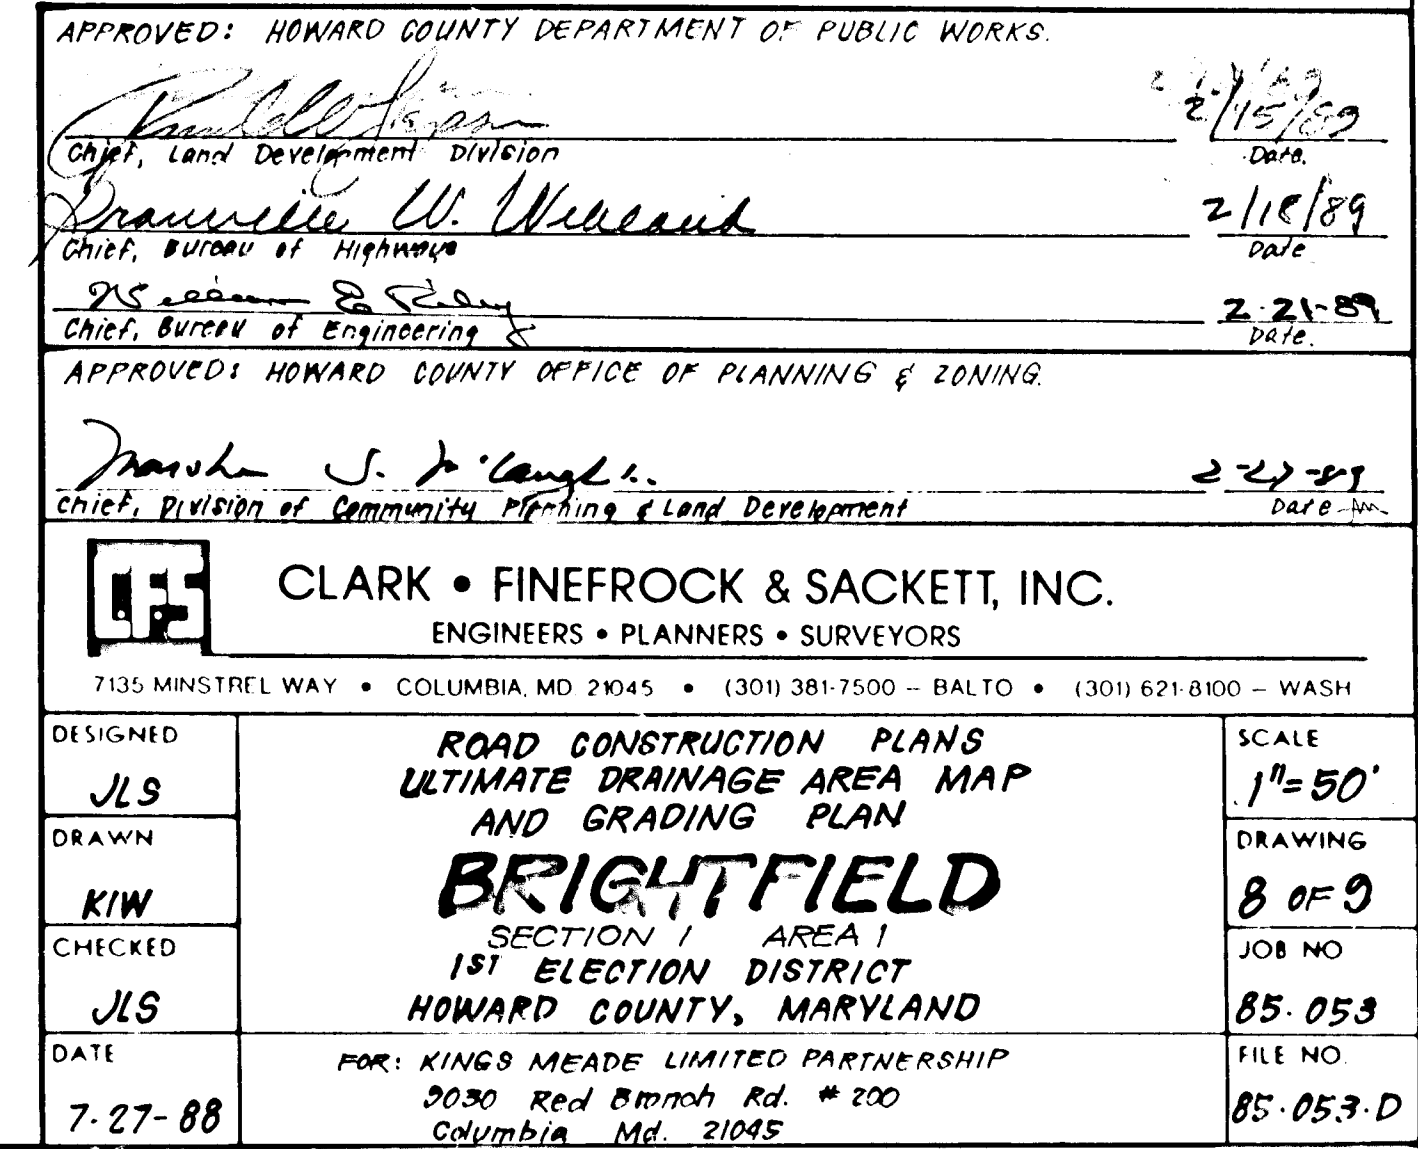 APPROVED: HOWARD COUNTY DEPARTMENT OF PUBLIC WORKS.
2/15/89
Chief, Land Development Division Date.
W. 2/18/89
Chief, Bureau of Highways Date
William E. Riley 2-21-89
Chief, Bureau of Engineering Date.
APPROVED: HOWARD COUNTY OFFICE OF PLANNING & ZONING.
Marsha S. McLaughlin 2-27-89
Chief, Division of Community Planning & Land Development Date
CFS
CLARK • FINEFROCK & SACKETT, INC.
ENGINEERS • PLANNERS • SURVEYORS
7135 MINSTREL WAY • COLUMBIA, MD. 21045 • (301) 381-7500 – BALTO • (301) 621-8100 – WASH
DESIGNED
JLS
DRAWN
KIW
CHECKED
JLS
DATE
7-27-88
ROAD CONSTRUCTION PLANS
ULTIMATE DRAINAGE AREA MAP
AND GRADING PLAN
BRIGHTFIELD
SECTION 1 AREA 1
1ST ELECTION DISTRICT
HOWARD COUNTY, MARYLAND
FOR: KINGS MEADE LIMITED PARTNERSHIP
9030 Red Branch Rd. # 200
Columbia Md. 21045
SCALE
1"=50'
DRAWING
8 OF 9
JOB NO
85-053
FILE NO.
85-053-D